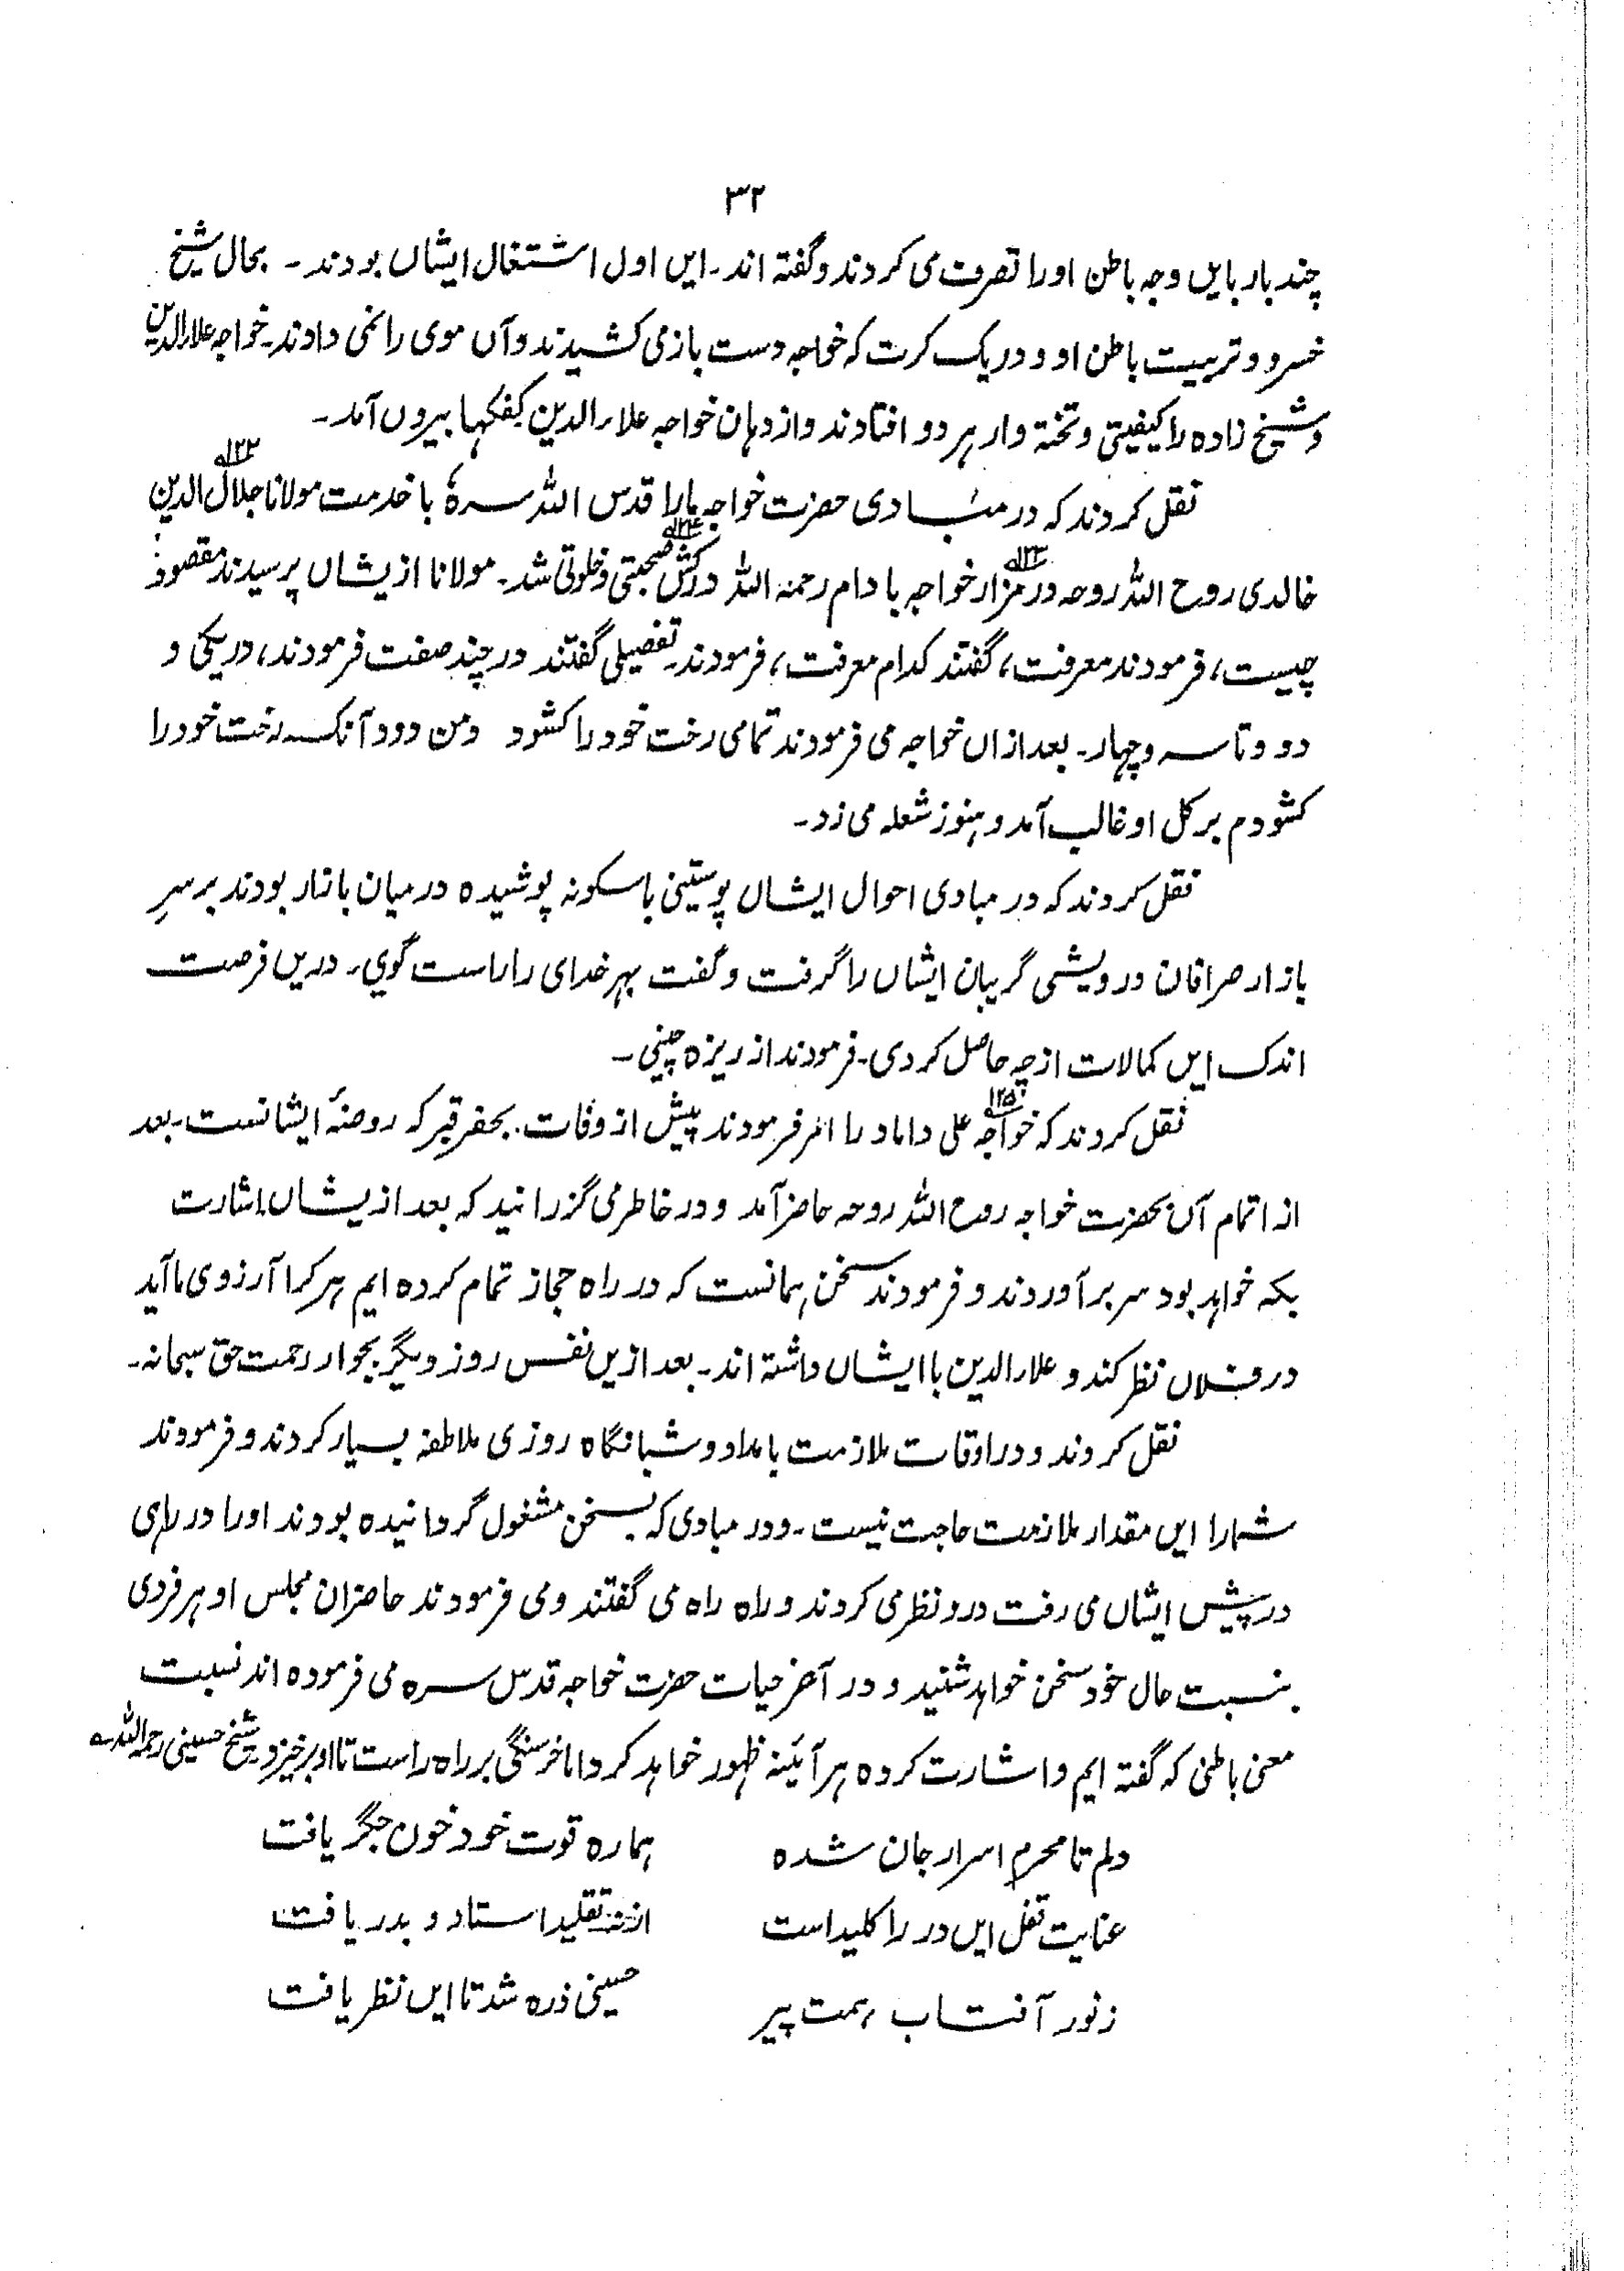 ۳۲
چند بار بایں وجہ باطن او را تصرف می کردند و گفتہ اند۔ ایں اول اشتغال ایشاں بودند۔ بحال شیخ
خسرو و تربیت باطن او و دریک کرت کہ خواجہ دست باز می کشیدند و آں موی را نمی دادند۔ خواجہ علاء الدین
و شیخ زادہ را کیفیتی و تختہ وار ہر دو افتادند و از دہان خواجہ علاء الدین کفکہا بیروں آمد۔
نقل کردند کہ در مبادی حضرت خواجہ مارا قدس اللہ سرہٗ با خدمت مولانا جلال الدین
خالدی روح اللہ روحہ در مزار خواجہ بادام رحمہ اللہ در کش صحبتی و خلوتی شد۔ مولانا ازیشاں پرسیدند مقصود
چیست، فرمودند معرفت، گفتند کدام معرفت، فرمودند۔ تفصیلی گفتند در چند صفت فرمودند، در یکی و
دو و تا سہ و چہار۔ بعد ازاں خواجہ می فرمودند تمامی رخت خود را کشود و من دود آنک رخت خود را
کشودم بر کل او غالب آمد و ہنوز شعلہ می زد۔
نقل کردند کہ در مبادی احوال ایشاں پوستینی باسکونہ پوشیدہ درمیان بازار بودند بر سرِ
بازار صرافان درویشی گریبان ایشاں را گرفت و گفت بہر خدای را راست گوی۔ دریں فرصت
اندک ایں کمالات از چہ حاصل کردی۔ فرمودند از ریزہ چینی۔
نقل کردند کہ خواجہ علی داماد را امر فرمودند پیش از وفات۔ بحفر قبر کہ روضۂ ایشانست۔ بعد
از اتمام آں بحضرت خواجہ روح اللہ روحہ حاضر آمد و در خاطر می گزرانید کہ بعد ازیشاں اشارت
بکہ خواہد بود سر برآوردند و فرمودند سخن ہمانست کہ در راہ حجاز تمام کردہ ایم ہر کرا آرزوی ما آید
در فلاں نظر کند و علاء الدین با ایشاں داشتہ اند۔ بعد ازیں نفس روز دیگر بجوار رحمت حق سبحانہ۔
نقل کردند و در اوقات ملازمت بامداد و شبانگاہ روزی ملاطفہ بسیار کردند و فرمودند
شمارا ایں مقدار ملازمت حاجت نیست۔ و در مبادی کہ بسخن مشغول گردانیدہ بودند او را در راہی
در پیش ایشاں می رفت درو نظر می کردند و راہ راہ می گفتند و می فرمودند حاضران مجلس او ہر فردی
بنسبت حال خود سخن خواہد شنید و در آخر حیات حضرت خواجہ قدس سرہ می فرمودہ اند نسبت
معنی باطنی کہ گفتہ ایم و اشارت کردہ ہر آئینہ ظہور خواہد کرد اما خرسنگی بر راہ راست تا او برخیزد۔ شیخ حسینی رحمہ اللہ
دلم تا محرم اسرار جان شدہ ہمارہ قوت خود خون جگر یافت
عنایت قفل ایں در را کلید است تقلید استاد و پدر یافت
ز نور آفتاب ہمت پیر حسینی ذرہ شد تا ایں نظر یافت